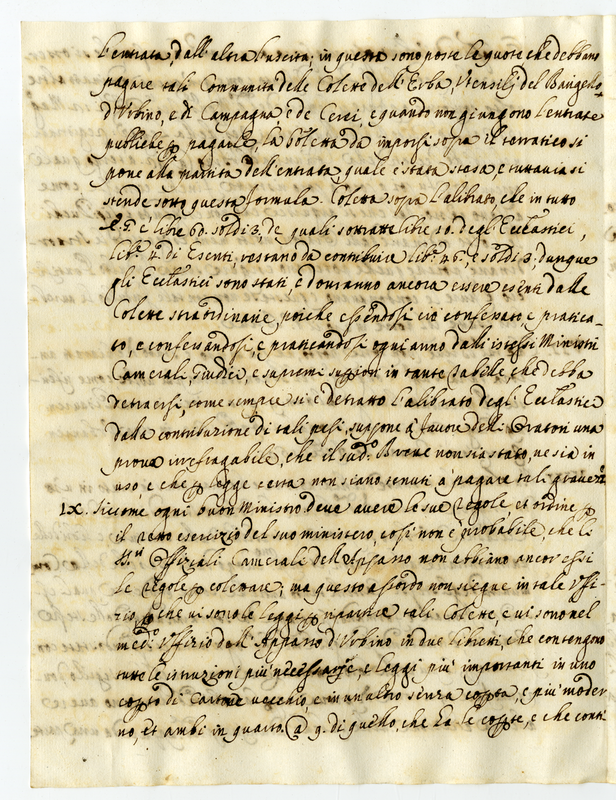 l'entrata, dall'altra l'uscita; in questa sono poste le quote che debbano
pagare tali Communità delle Colette dell'Erba, Utensilij del Bargello
d'Urbino, e di Campagna, e de Cerei, e quando non giungono l'entrate
publiche p pagarle, la boletta da imporsi sopra il terratico si
pone alla partita dell'entrata, quale è stata stesa, e tuttavia si
stende sotto questa formula. Coletta sopra l'alibrato, che in tutto
è libre 60. soldi 3, de quali sottratte libre 10. degl'Ecclastici,
lib.e 4. di Esenti, restano da contribuire lib.e 46, e soldi 3, dunque
gli Ecclastici sono stati, e douranno ancora essere esenti dalle
Colette straordinarie, poiche essendosi ciò confessato e pratica-
to, e confessandosi, e praticandosi ogni anno dalli istessi Ministri
Camerali, Giudici, e supremi suppiori in tante Tabelle, che debba
detraersi, come sempre si è detratto l'alibrato degl'Ecclastici
dalla contribuzione di tali pesi, suppone à favore delli Oratori una
prova irrefragabile, che il sud.o Breve non sia stato, ne sia in
uso, e che p legge certa non siano tenuti à pagare tali gravezze
LX. Siccome ogni buon Ministro deve avere le sue regole, et ordine p
il retto esercizio del suo ministero, cosi non è probabile, che li
SS.ri Offiziali Camerali dell'Appasso non abbiano ancor essi
le regole p colettare; ma questo assordo non siegue in tale Uffi-
zio, p che vi sono le leggi p ripartire tali Colette, e vi sono nel
med.o Uffizio dell'Appasso d'Urbino in due libretti, che contengono
tutte le istruzioni più necessarie, e leggi più importanti in uno
copto di Cartone vecchio, e in un altro senza copta, e più moder
no, et ambi in quarto. @ 9. di quello, che ha le copte, e che conti